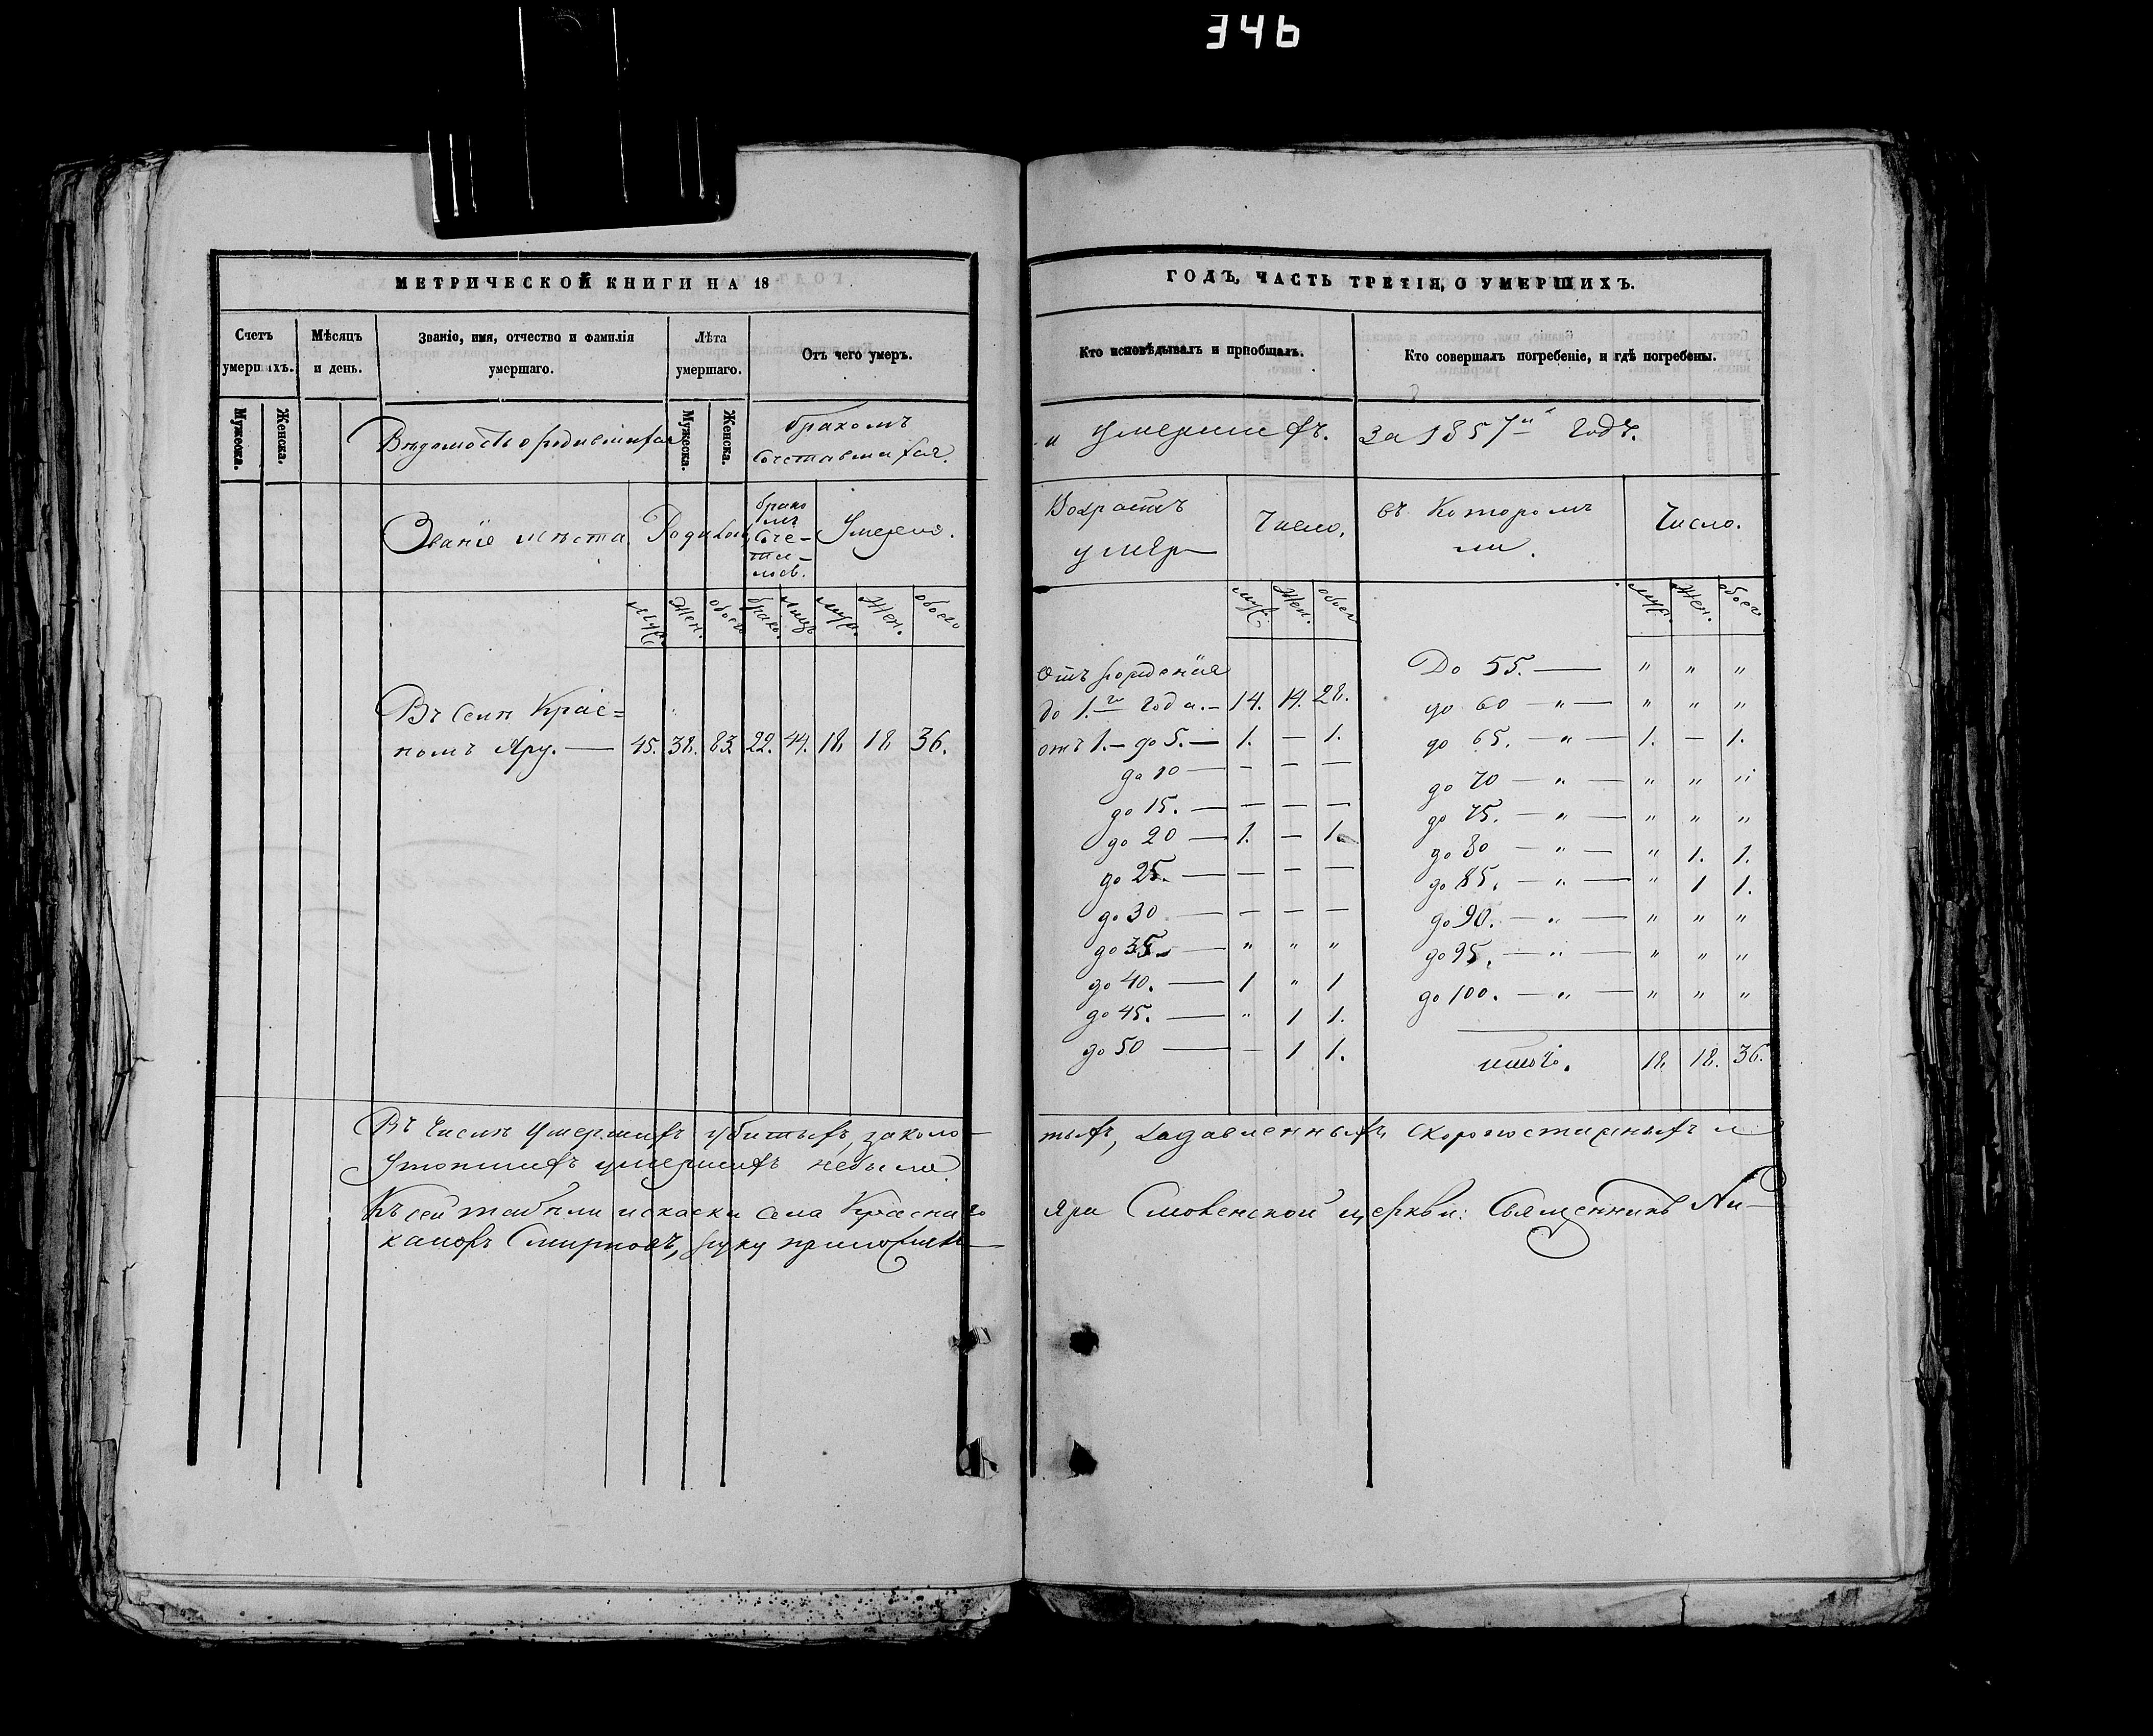 346
МЕТРИЧЕСКОЙ КНИГИ НА 18
Счетъ умершихъ.
Мѣсяцъ и день.
Званіе, имя, отчество и фамилія умершаго.
Лѣта умершаго.
Отъ чего умеръ.
Мужеска.
Женска.
Мужеска.
Женска.
Вѣдомость о родившихся
бракомъ
сочетавшихся.
Званіе мѣста
Родилось
брако
мъ
соче-
та-
лось.
Умерло.
муж. жен. обоего брако. лицъ муж. жен. обоего
Въ селѣ Крас=
номъ Яру. — 45. 38. 83. 22. 44. 18. 18. 36.
Въ числѣ умершихъ убитыхъ, заколо-
Утопшихъ умершихъ небыло
Къ сей
села Краснаго
каноръ Смирновъ, руку приложилъ
ГОДЪ, ЧАСТЬ ТРЕТІЯ, О УМЕРШИХЪ.
Кто исповѣдывалъ и пріобщалъ.
Кто совершалъ погребеніе, и гдѣ погребены.
и умершихъ. за 1857й годъ.
Возрастъ
умер
Число.
въ Которомъ
ли.
Число.
муж. жен. обоего
муж. жен. обоего
Отъ рожденія
до 1.го года. — 14. 14. 28.
отъ 1. — до 5. — 1. — 1.
до 10 — — — —
до 15. — — — —
до 20 — 1. — 1.
до 25. — — — —
до 30 — — — —
до 35. — " " "
до 40. — 1 " 1
до 45. — " 1 1.
до 50 — — 1 1.
До 55. — " " "
до 60 — " — " " "
до 65. — " — 1. — 1.
до 70 — " — " " "
до 75. — " — " " "
до 80 — " — " 1. 1.
до 85. — " — " 1 1.
до 90. — " — " " "
до 95. — " — " " "
до 100. — " — " " "
итого. 18. 18. 36.
тыхъ, задавленныхъ, скоропостижныхъ и
яра Смоленской церкви: Священникъ Ни-